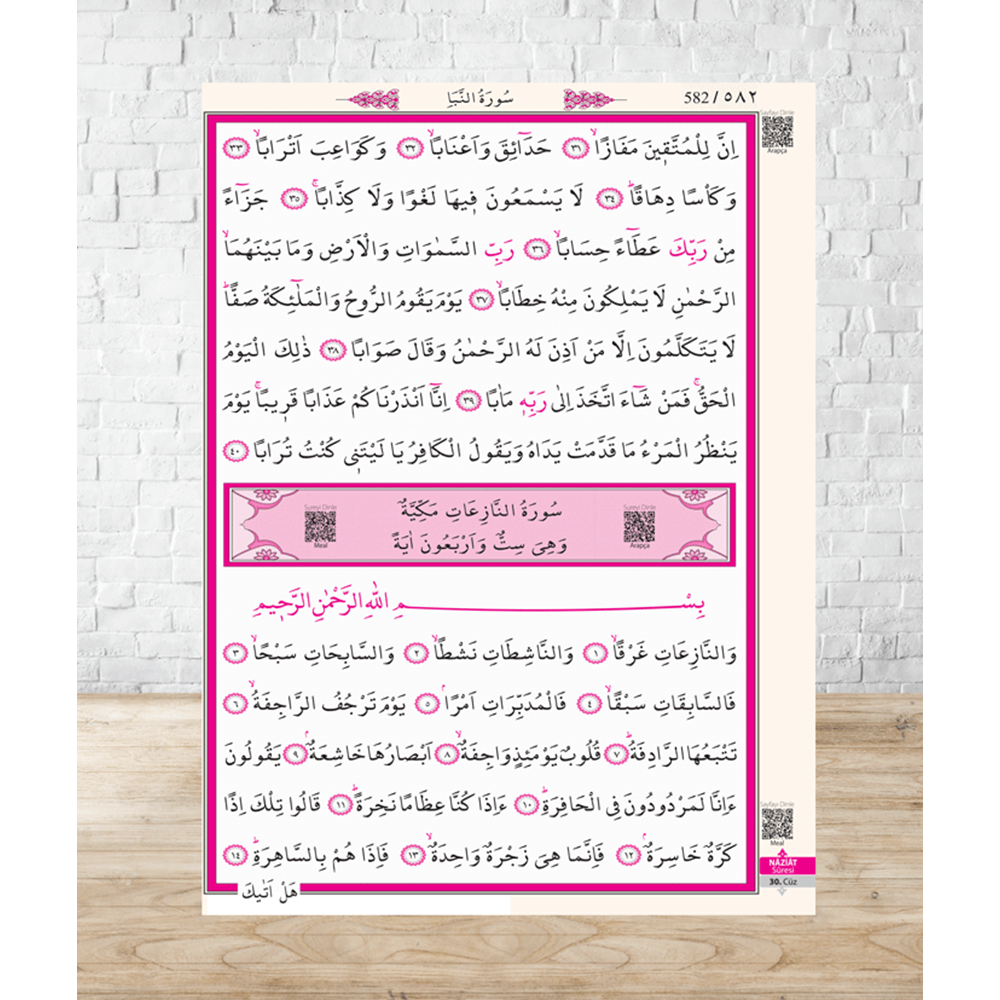 سُورَةُ النَّبَأِ
582 / ٥٨٢
Sayfayı Dinle
Arapça
اِنَّ لِلْمُتَّقٖينَ مَفَازًاۙ ﴿٣١﴾ حَدَٓائِقَ وَاَعْنَابًاۙ ﴿٣٢﴾ وَكَوَاعِبَ اَتْرَابًاۙ ﴿٣٣﴾
وَكَأْسًا دِهَاقًاۜ ﴿٣٤﴾ لَا يَسْمَعُونَ فٖيهَا لَغْوًا وَلَا كِذَّابًاۚ ﴿٣٥﴾ جَزَٓاءً
مِنْ رَبِّكَ عَطَٓاءً حِسَابًاۙ ﴿٣٦﴾ رَبِّ السَّمٰوَاتِ وَالْاَرْضِ وَمَا بَيْنَهُمَاۙ
الرَّحْمٰنِ لَا يَمْلِكُونَ مِنْهُ خِطَابًاۙ ﴿٣٧﴾ يَوْمَ يَقُومُ الرُّوحُ وَالْمَلٰٓئِكَةُ صَفًّاۜ
لَا يَتَكَلَّمُونَ اِلَّا مَنْ اَذِنَ لَهُ الرَّحْمٰنُ وَقَالَ صَوَابًا ﴿٣٨﴾ ذٰلِكَ الْيَوْمُ
الْحَقُّۚ فَمَنْ شَٓاءَ اتَّخَذَ اِلٰى رَبِّهٖ مَاٰبًا ﴿٣٩﴾ اِنَّٓا اَنْذَرْنَاكُمْ عَذَابًا قَرٖيبًاۚ يَوْمَ
يَنْظُرُ الْمَرْءُ مَا قَدَّمَتْ يَدَاهُ وَيَقُولُ الْكَافِرُ يَا لَيْتَنٖى كُنْتُ تُرَابًا ﴿٤٠﴾
Sureyi Dinle
Meal
سُورَةُ النَّازِعَاتِ مَكِّيَّةٌ
وَهِىَ سِتٌّ وَاَرْبَعُونَ اٰيَةً
Sureyi Dinle
Arapça
بِسْمِ اللّٰهِ الرَّحْمٰنِ الرَّحٖيمِ
وَالنَّازِعَاتِ غَرْقًاۙ ﴿١﴾ وَالنَّاشِطَاتِ نَشْطًاۙ ﴿٢﴾ وَالسَّابِحَاتِ سَبْحًاۙ ﴿٣﴾
فَالسَّابِقَاتِ سَبْقًاۙ ﴿٤﴾ فَالْمُدَبِّرَاتِ اَمْرًاۢ ﴿٥﴾ يَوْمَ تَرْجُفُ الرَّاجِفَةُۙ ﴿٦﴾
تَتْبَعُهَا الرَّادِفَةُۜ ﴿٧﴾ قُلُوبٌ يَوْمَئِذٍ وَاجِفَةٌۙ ﴿٨﴾ اَبْصَارُهَا خَاشِعَةٌۢ ﴿٩﴾ يَقُولُونَ
ءَاِنَّا لَمَرْدُودُونَ فِى الْحَافِرَةِۜ ﴿١٠﴾ ءَاِذَا كُنَّا عِظَامًا نَخِرَةًۜ ﴿١١﴾ قَالُوا تِلْكَ اِذًا
كَرَّةٌ خَاسِرَةٌۢ ﴿١٢﴾ فَاِنَّمَا هِىَ زَجْرَةٌ وَاحِدَةٌۙ ﴿١٣﴾ فَاِذَا هُمْ بِالسَّاهِرَةِۜ ﴿١٤﴾
هَلْ اَتٰيكَ
Sayfayı Dinle
Meal
NÂZİÂT
Sûresi
30. Cüz